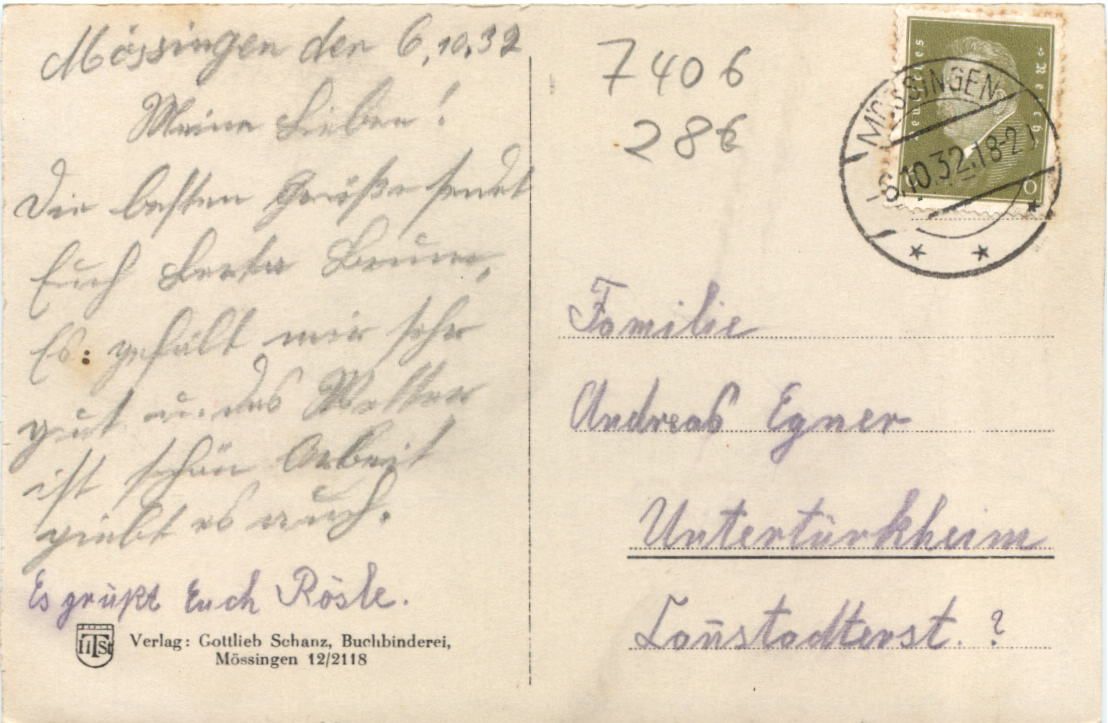 Mössingen den 6.10.32
Meine Lieben!
Die besten Grüße sendet
Euch Berta Braun,
Es gefällt mir sehr
gut u. das Wetter
ist schön Arbeit
giebt es auch.
Es grüßt Euch Rösle.
Verlag: Gottlieb Schanz, Buchbinderei,
Mössingen 12/2118
7406
286
Deutsches Reich
MÖSSINGEN
-8.10.32.18-2
Familie
Andreas Egner
Untertürkheim
Canstadterst. ?